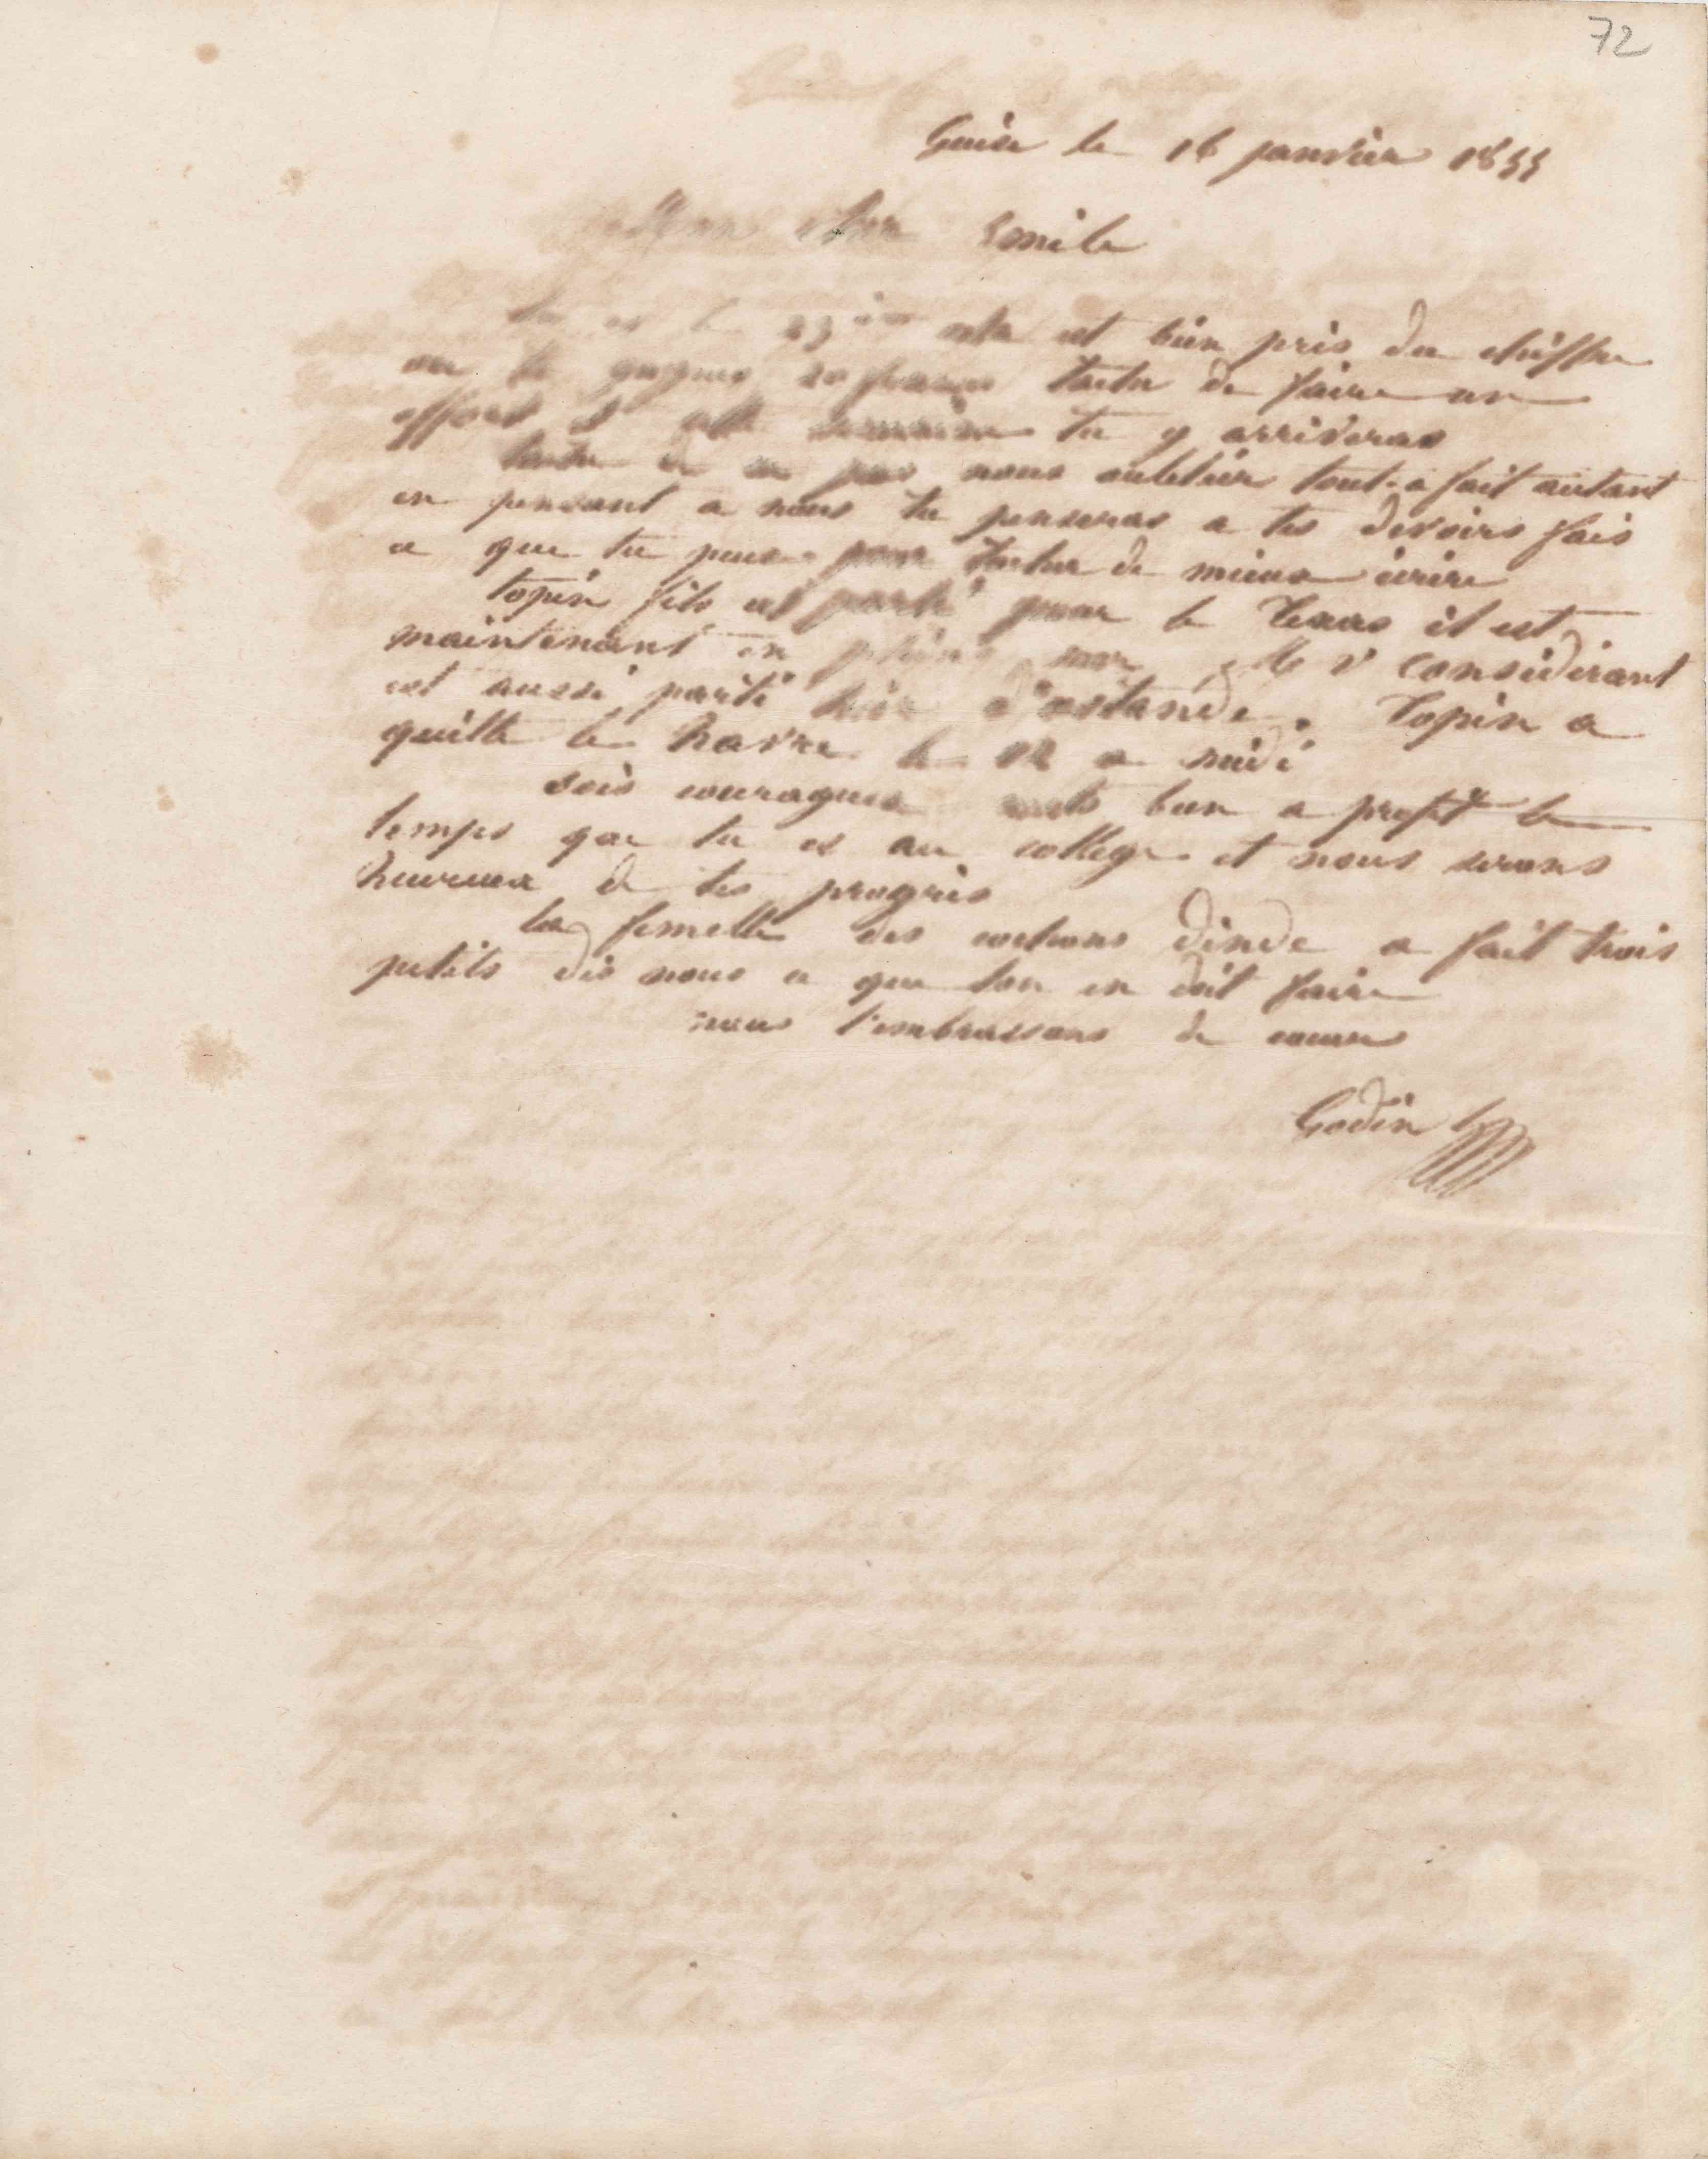 72
Guise le 16 janvier 1855
Mon cher Emile
tu es le 23ieme cela est bien pris du chiffre
ou tu gagnes 20 francs tache de faire un
effort et cette semaine tu y arriveras
tache de ne pas nous oublier tout-a fait autant
en pensant a nous tu penseras a tes devoirs fais
ce que tu peux pour tacher de mieux ecrire
topin fils est parti pour le Texas il est
maintenant en pleine mer, Mr V Considerant
est aussi parti hier d'ostande. Topin a
quitté le havre le 12 a midi
sois courageux mets bien a profit le
temps que tu es au college et nous serons
heureux de tes progrès
la femelle des cochons dinde a fait trois
petits dis nous ce que lon en doit faire
nous t'embrassons de coeur
Godin